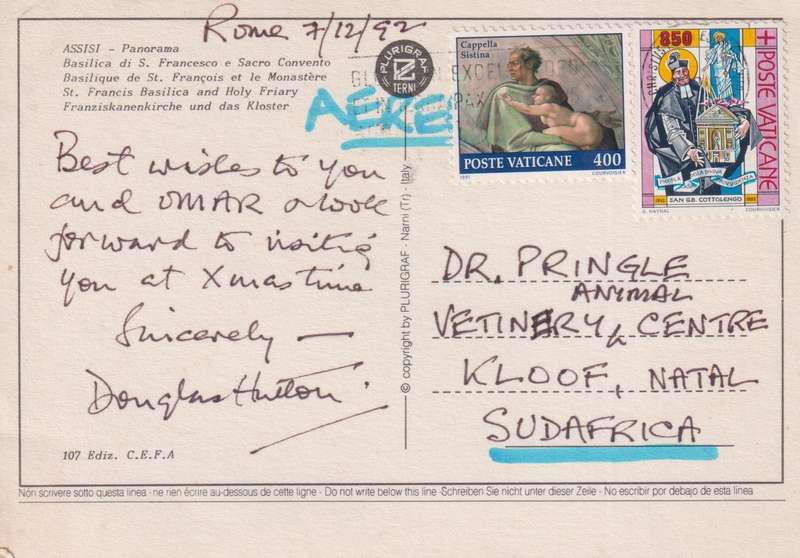 Rome 7/12/92
ASSISI - Panorama
Basilica di S. Francesco e Sacro Convento
Basilique de St. François et le Monastère
St. Francis Basilica and Holy Friary
Franziskanenkirche und das Kloster
PLURIGRAF
TERNI
Best wishes to you
and OMAR & look
forward to visiting
you at Xmas time
Sincerely —
Douglas Hutton
107 Ediz. C.E.F.A
© copyright by PLURIGRAF - Narni (Tr) - Italy
Cappella
Sistina
POSTE VATICANE 400
1991 COURVOISIER
850
POSTE VATICANE
SAN G.B. COTTOLENGO
COURVOISIER
DR. PRINGLE
ANYMAL
VETINERY CENTRE
KLOOF, NATAL
SUDAFRICA
Non scrivere sotto questa linea - ne rien écrire au-dessous de cette ligne - Do not write below this line - Schreiben Sie nicht unter dieser Zeile - No escribir por debajo de esta linea